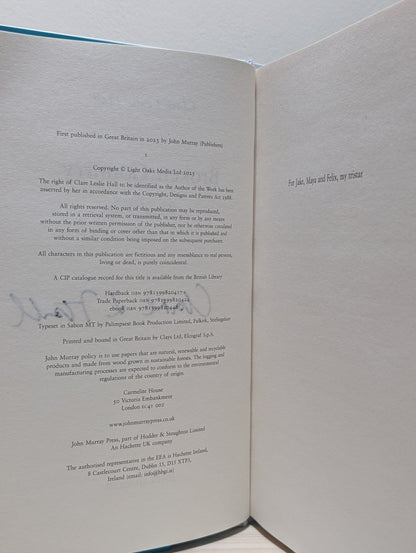 First published in Great Britain in 2025 by John Murray (Publishers)
1
Copyright © Light Oaks Media Ltd 2025
The right of Clare Leslie Hall to be identified as the Author of the Work has been
asserted by her in accordance with the Copyright, Designs and Patents Act 1988.
All rights reserved. No part of this publication may be reproduced,
stored in a retrieval system, or transmitted, in any form or by any means
without the prior written permission of the publisher, nor be otherwise circulated
in any form of binding or cover other than that in which it is published and
without a similar condition being imposed on the subsequent purchaser.
All characters in this publication are fictitious and any resemblance to real persons,
living or dead, is purely coincidental.
A CIP catalogue record for this title is available from the British Library
Hardback ISBN
Trade Paperback ISBN
ebook ISBN
Typeset in Sabon MT by Palimpsest Book Production Limited, Falkirk, Stirlingshire
Printed and bound in Great Britain by Clays Ltd, Elcograf S.p.A.
John Murray policy is to use papers that are natural, renewable and recyclable
products and made from wood grown in sustainable forests. The logging and
manufacturing processes are expected to conform to the environmental
regulations of the country of origin.
Carmelite House
50 Victoria Embankment
London EC4Y 0DZ
www.johnmurraypress.co.uk
John Murray Press, part of Hodder & Stoughton Limited
An Hachette UK company
The authorised representative in the EEA is Hachette Ireland,
8 Castlecourt Centre, Dublin 15, D15 XTP3,
Ireland (email: info@hbgi.ie)
For Jake, Maya and Felix, my tristar